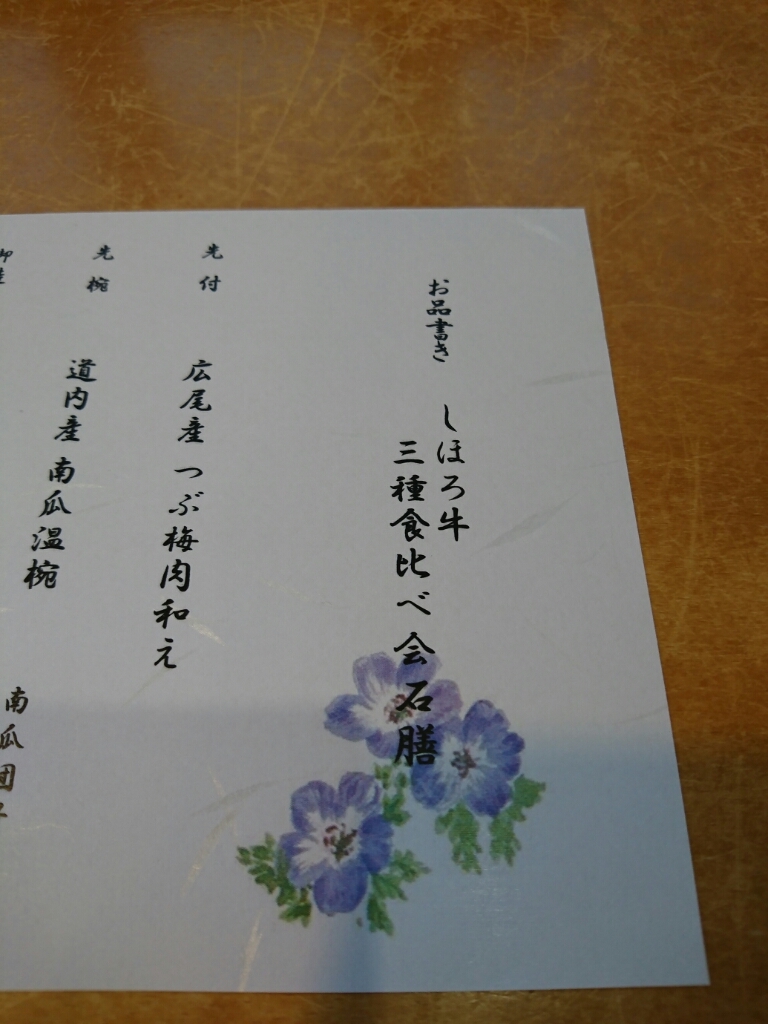 お品書き
しほろ牛
三種食比べ会石膳
先付
広尾産 つぶ梅肉和え
先椀
道内産 南瓜温椀
南瓜団子